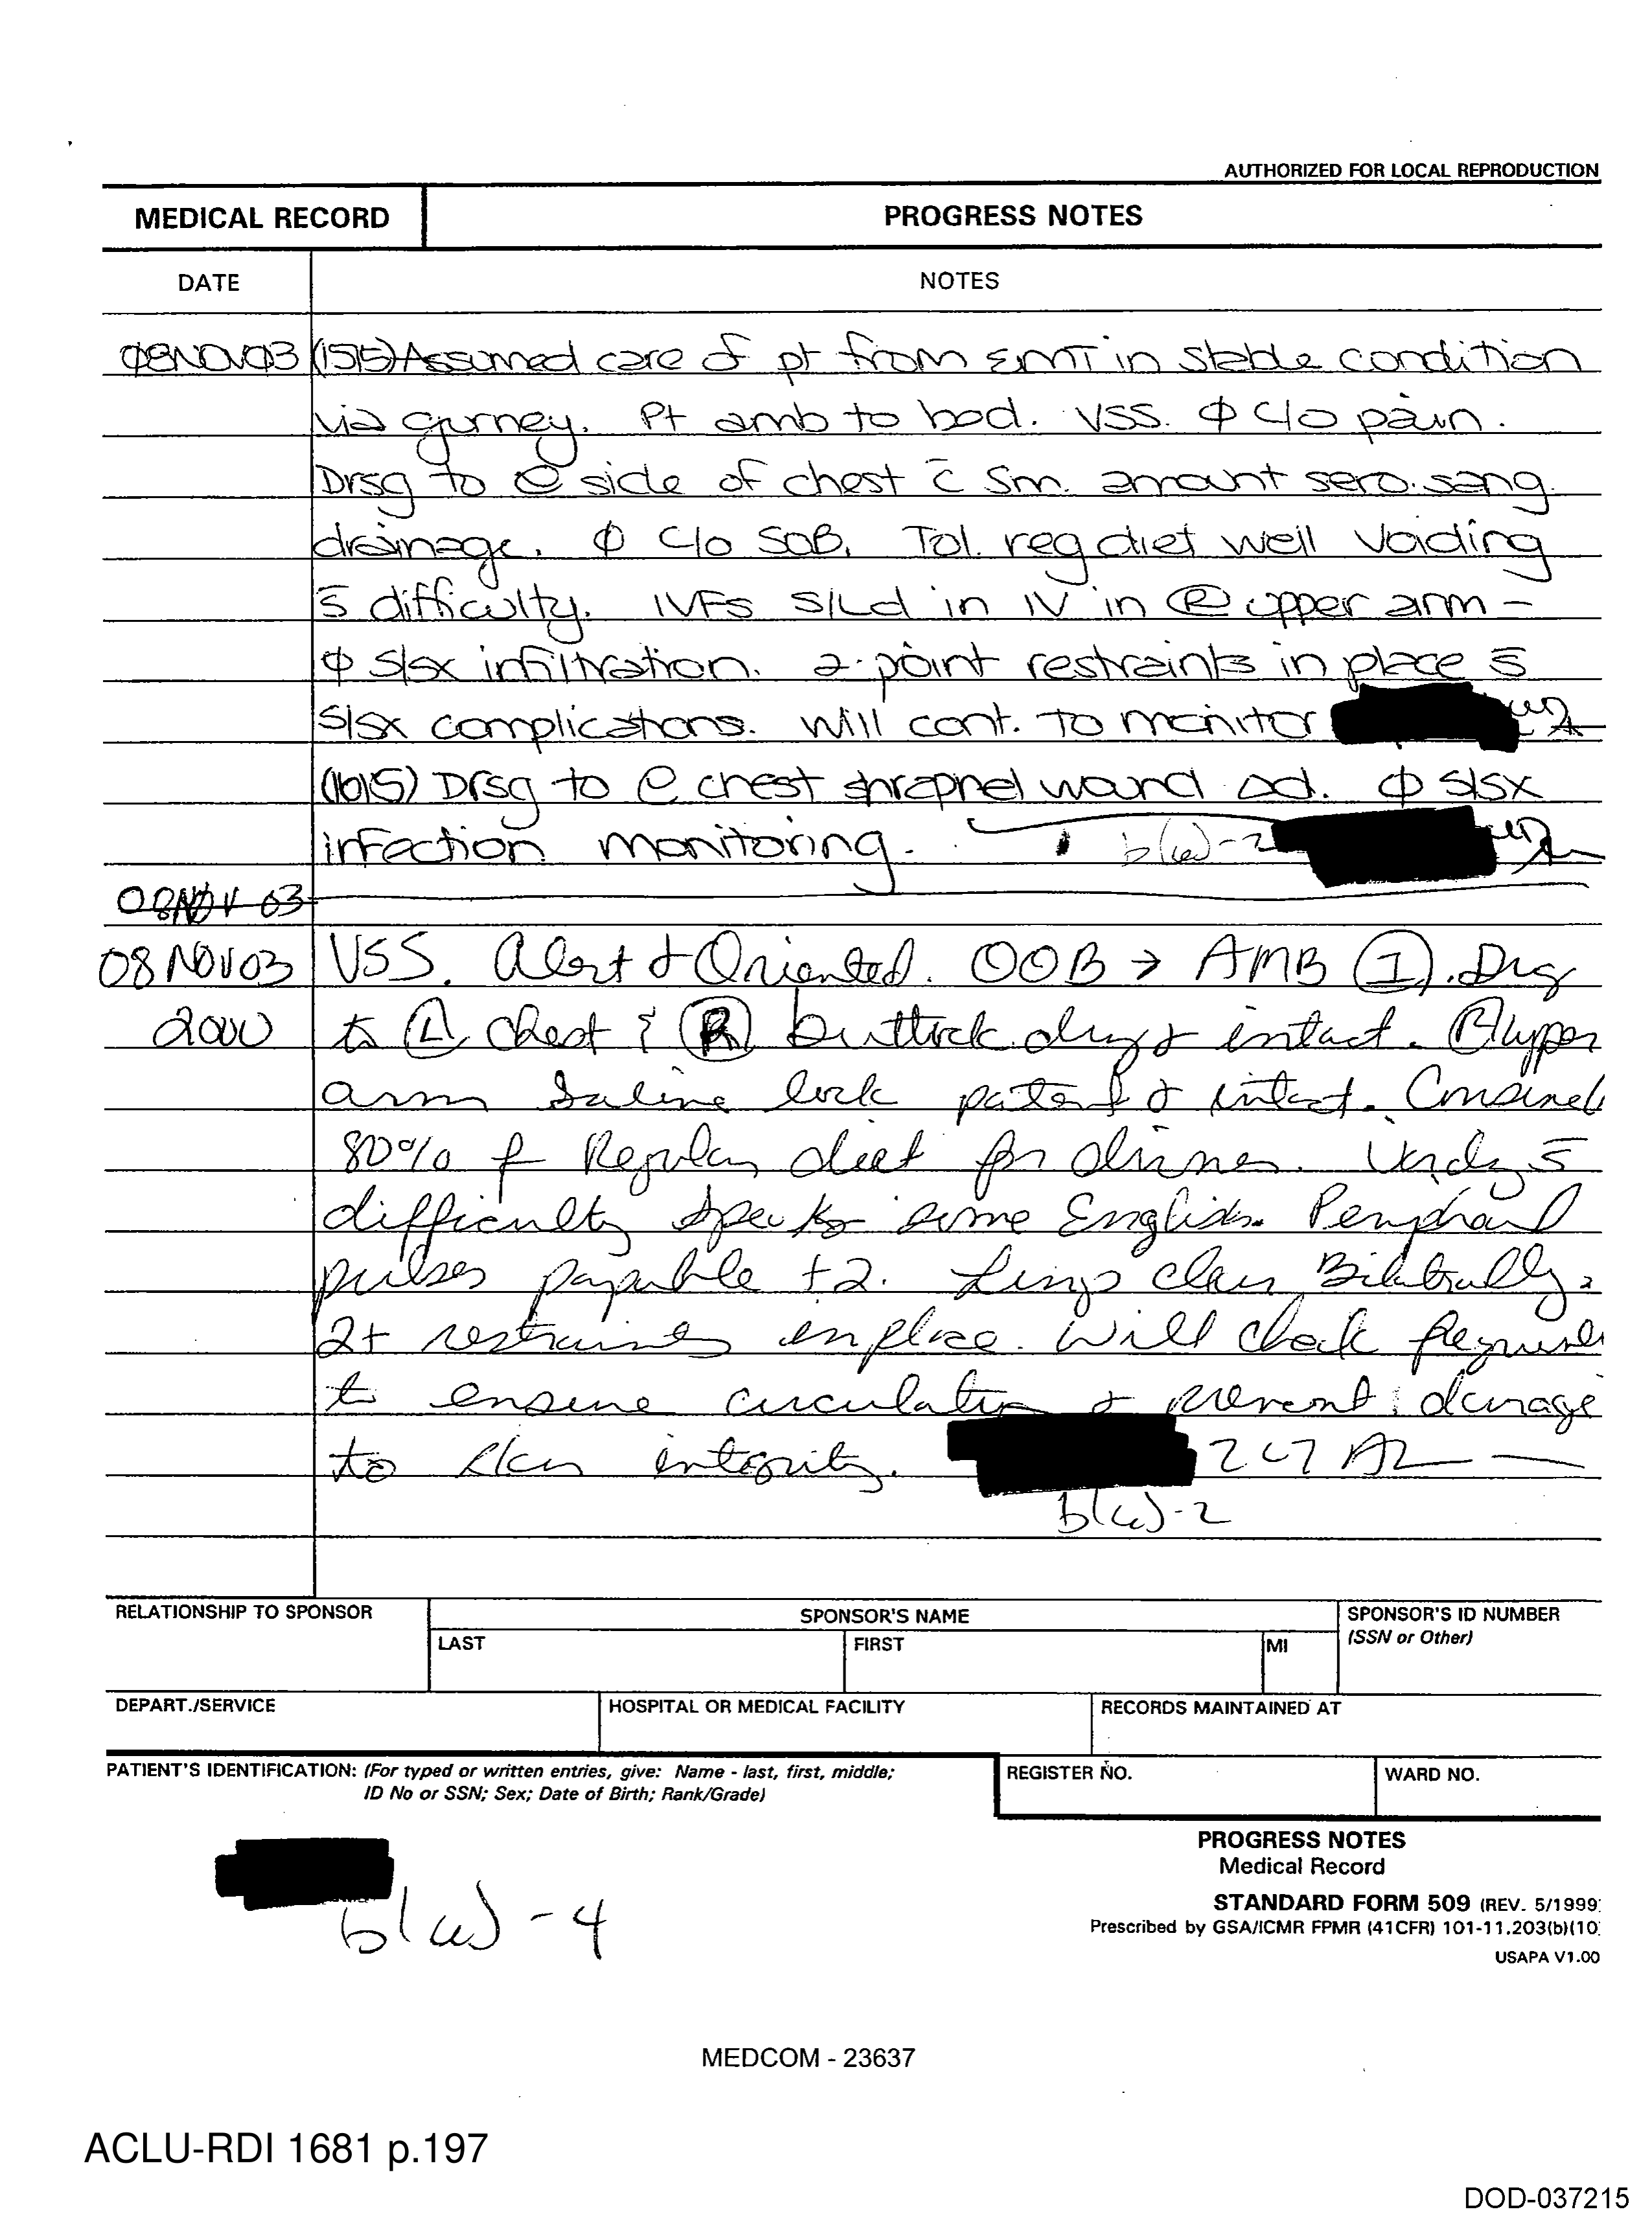 AUTHORIZED FOR LOCAL REPRODUCTION
MEDICAL RECORD PROGRESS NOTES
DATE NOTES
08NOV03 (1515) Assumed care of pt from EMT in stable condition
via gurney. Pt amb to bed. VSS. Φ c/o pain.
Drsg to Ⓛ side of chest c̄ sm. amount sero.sang.
drainage. Φ c/o SOB. Tol. reg diet well Voiding
s̄ difficulty. IVFs S/Ld in IV in Ⓡ upper arm –
Φ s/sx infiltration. 2-point restraints in place s̄
s/sx complications. Will cont. to monitor
(1615) Drsg to Ⓛ chest shrapnel wound Δd. Φ s/sx
infection monitoring. b(6)-2
08NOV 03
08 NOV03 VSS. Alert & Oriented. OOB → AMB Ⓘ. Drsg
2000 to Ⓛ chest & Ⓡ buttock dry & intact. Ⓡ upper
arm Saline lock patent & intact. Consumed
80% of Regular diet for dinner. Voidg s̄
difficulty speaks some English. Peripheral
pulses papable +2. Lungs clear Bilaterally.
2+ restraints in place. Will check frequently
to ensure circulation & prevent damage
to skin integrity. 2LT AN
b(6)-2
RELATIONSHIP TO SPONSOR SPONSOR'S NAME SPONSOR'S ID NUMBER
LAST FIRST MI (SSN or Other)
DEPART./SERVICE HOSPITAL OR MEDICAL FACILITY RECORDS MAINTAINED AT
PATIENT'S IDENTIFICATION: (For typed or written entries, give: Name - last, first, middle; REGISTER NO. WARD NO.
ID No or SSN; Sex; Date of Birth; Rank/Grade)
PROGRESS NOTES
Medical Record
STANDARD FORM 509 (REV. 5/1999)
Prescribed by GSA/ICMR FPMR (41CFR) 101-11.203(b)(10)
USAPA V1.00
b(6)-4
MEDCOM - 23637
ACLU-RDI 1681 p.197
DOD-037215